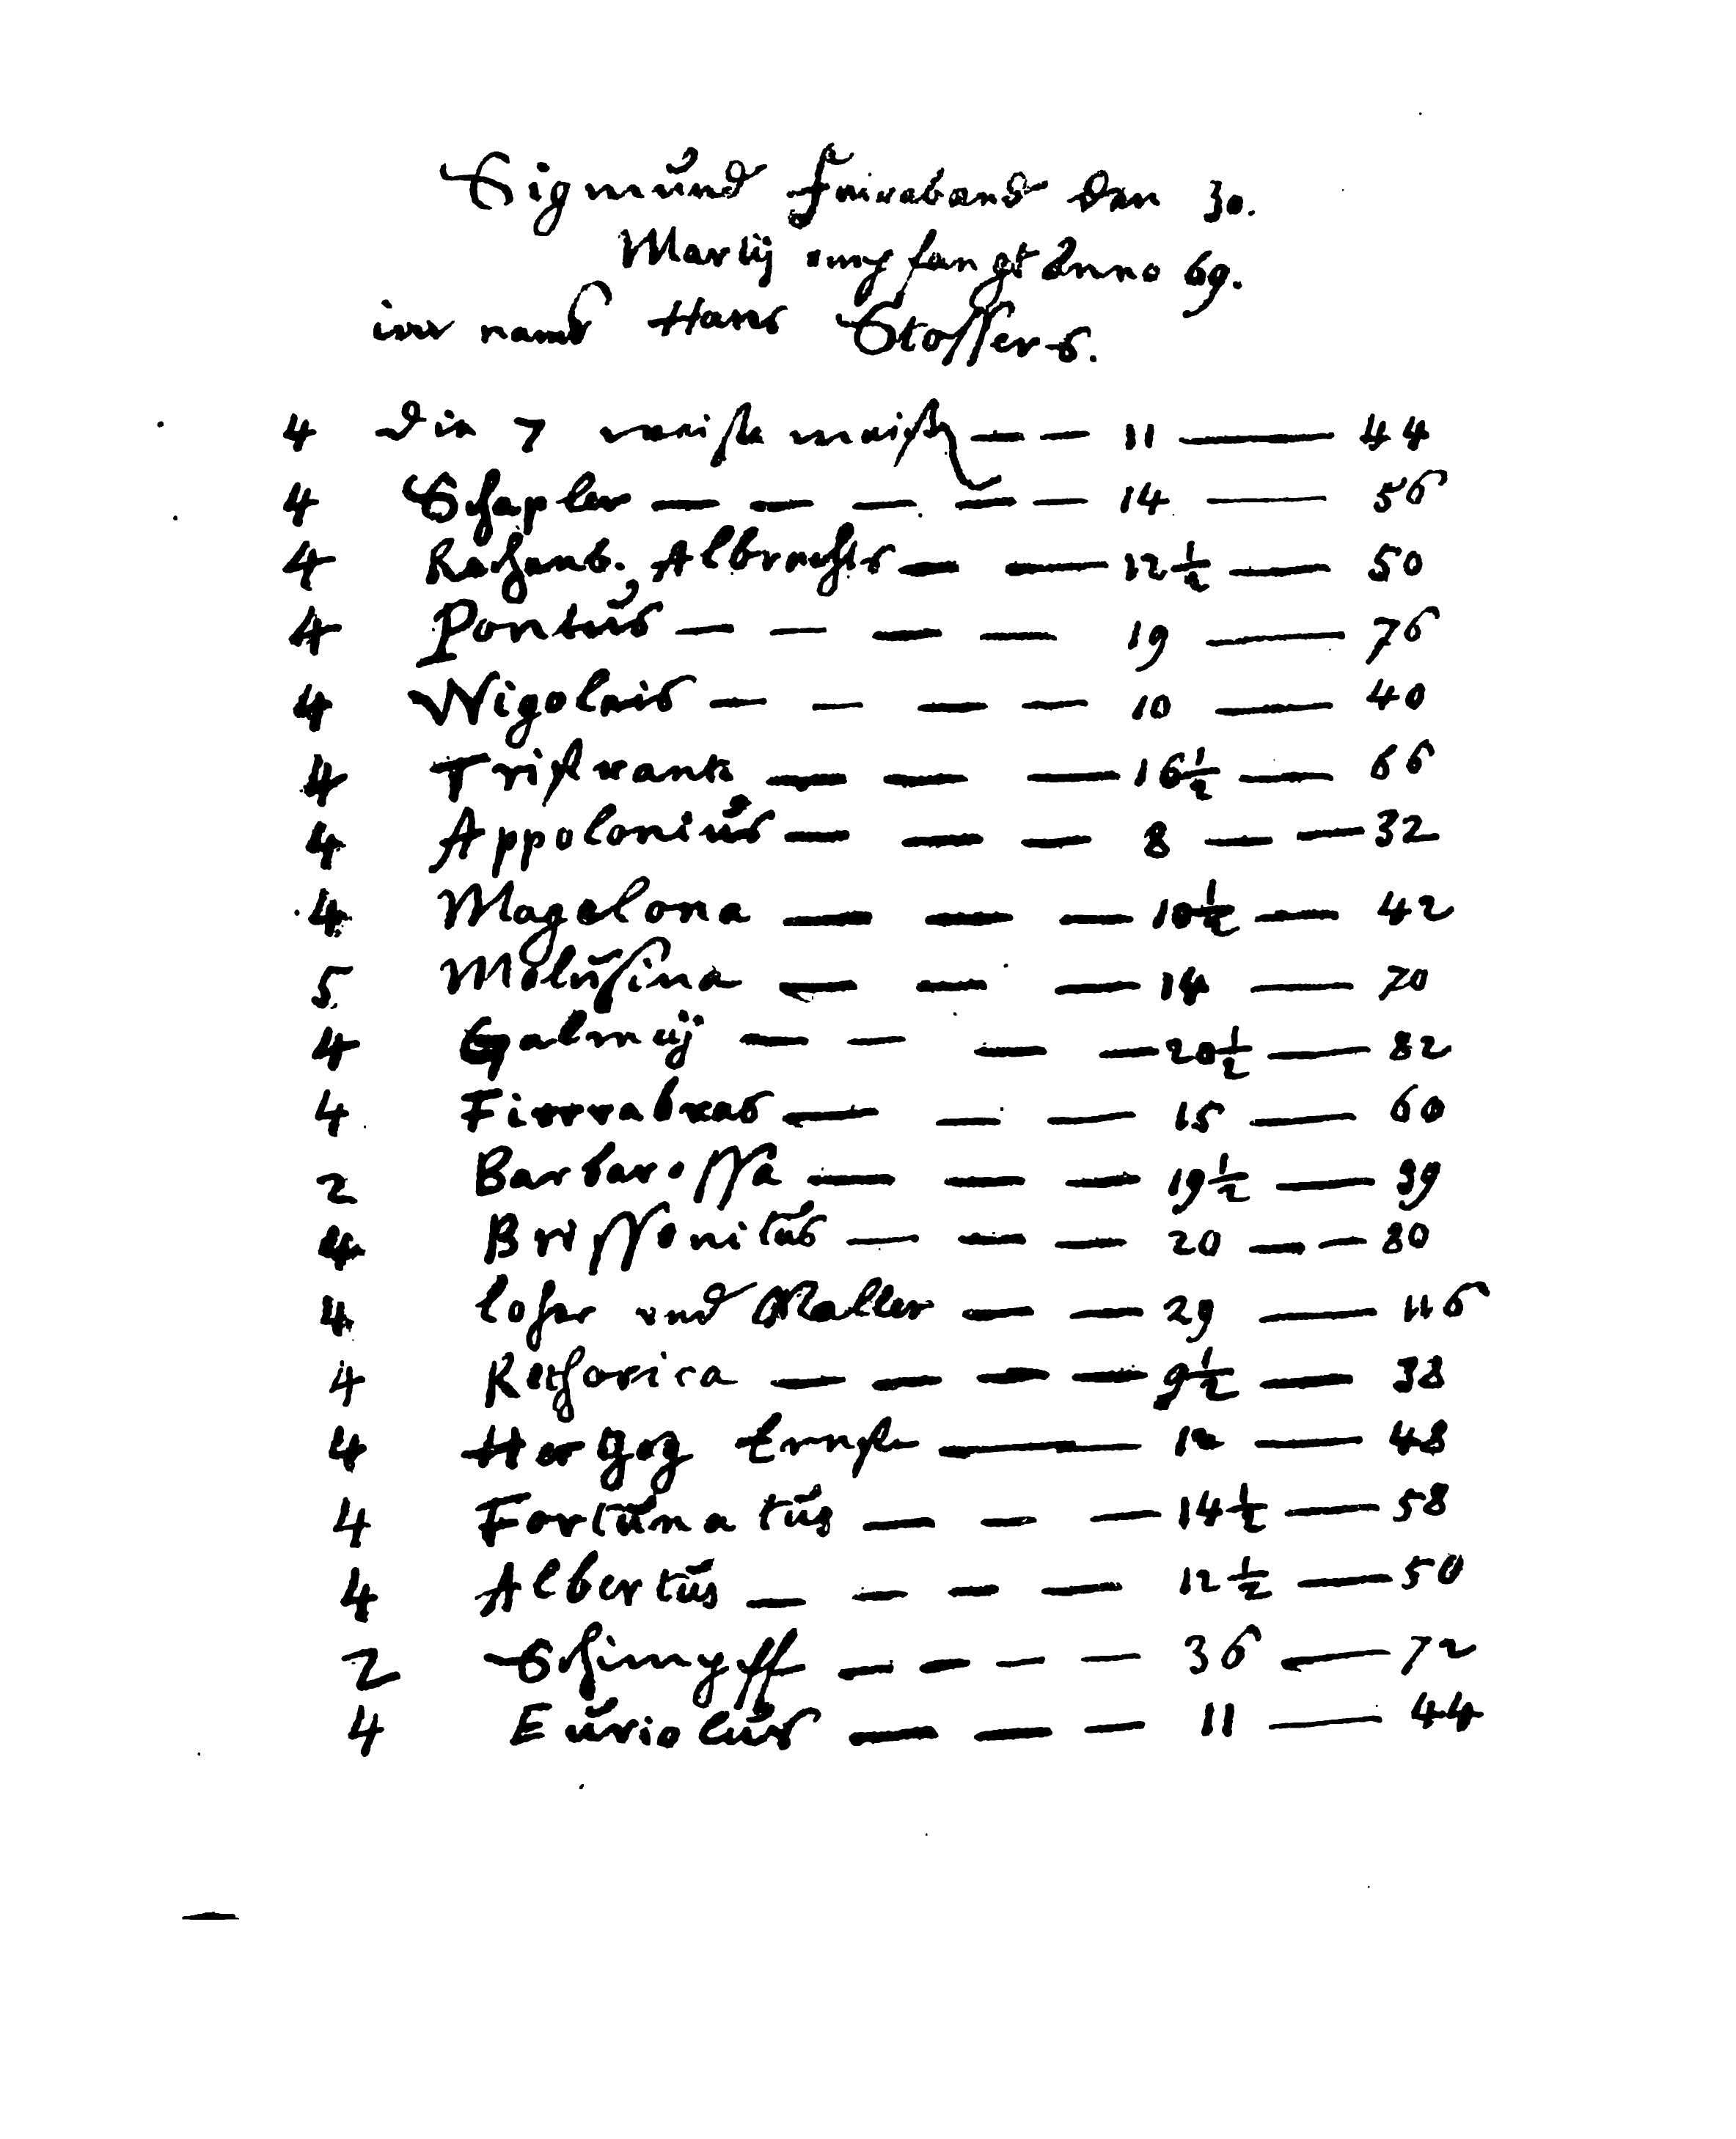 Sigmund Feiraband den 30.
Martij empfangt Anno 69.
inn namb Hans Stossers.
4 die 7 weisse meister — — 11 — 44
4 Schapler — — — — — 14 — 56
4 Rechenb. Albrechts — — 12½ — 50
4 Pontus — — — — 19 — 76
4 Nigolais — — — — 10 — 40
4 Tristrant — — — 16½ — 66
4 Appolonius — — — 8 — — 32
4 Magelona — — — 10½ — 42
5 Melusina — — — 14 — 70
4 Galmij — — — — 20½ — 82
4 Fierrabras — — — 15 — 60
2 Barbarossa — — — 19½ — 39
4 Brissonitus — — — 20 — — 80
4 loher und Maller — — 29 — 116
4 Rethorica — — — — 9½ — 38
4 Hergog Ernst — 12 — 48
4 Fortunatus — — — 14½ — 58
4 Albertus — — — — 12½ — 50
2 Schimpff — — — — 36 — 72
4 Euriolus — — — 11 — 44